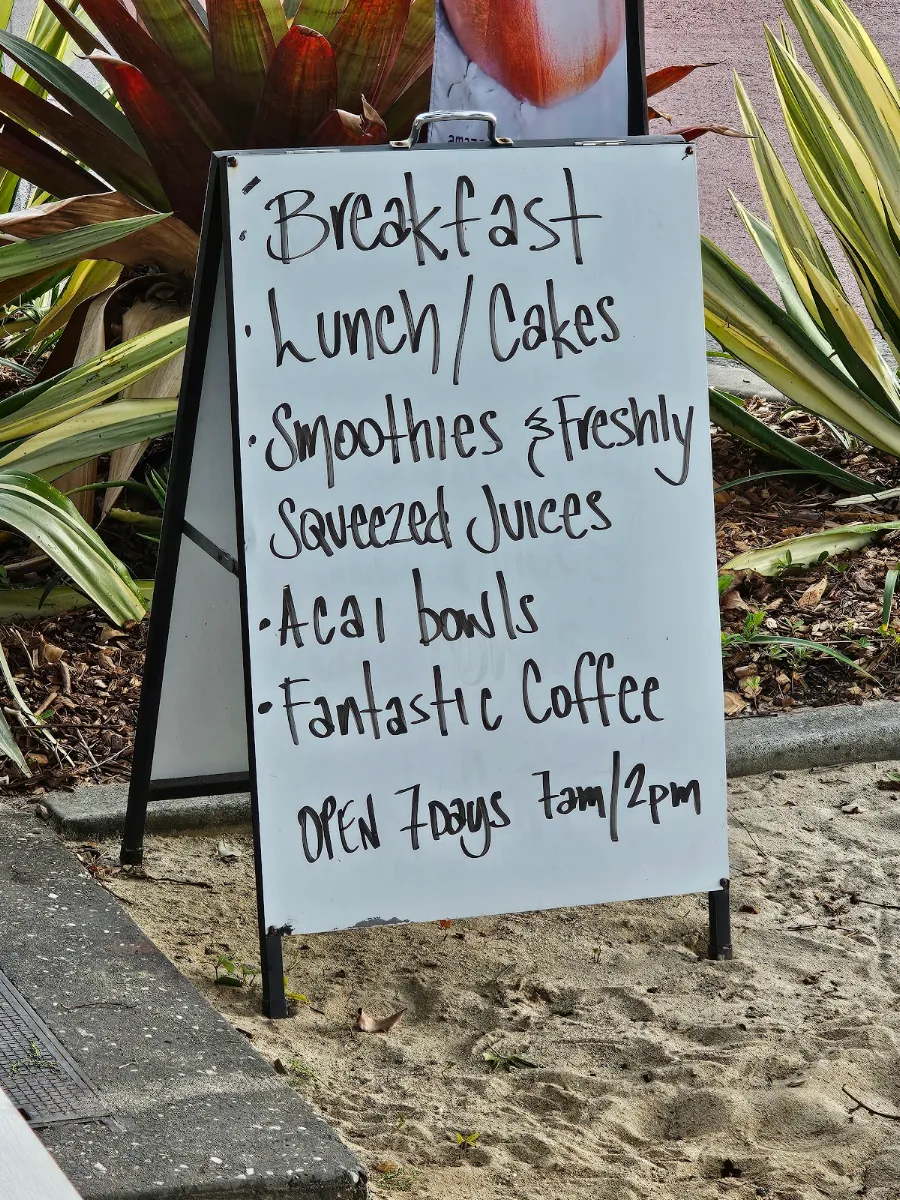 · Breakfast
· Lunch/Cakes
· Smoothies & Freshly
Squeezed Juices
· Acai bowls
· Fantastic Coffee
OPEN 7Days 7am/2pm